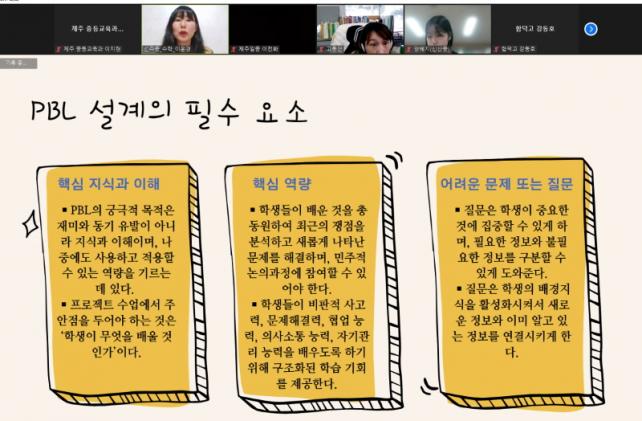 제주 중등교육과...
제주 중등교육과 이지현
제주일중 이전화
함덕고 강동호
함덕고 강동호
PBL 설계의 필수 요소
핵심 지식과 이해
▪ PBL의 궁극적 목적은
재미와 동기 유발이 아니
라 지식과 이해이며, 나
중에도 사용하고 적용할
수 있는 역량을 기르는
데 있다.
▪ 프로젝트 수업에서 주
안점을 두어야 하는 것은
‘학생이 무엇을 배울 것
인가’이다.
핵심 역량
▪ 학생들이 배운 것을 총
동원하여 최근의 쟁점을
분석하고 새롭게 나타난
문제를 해결하며, 민주적
논의과정에 참여할 수 있
어야 한다.
▪ 학생들이 비판적 사고
력, 문제해결력, 협업 능
력, 의사소통 능력, 자기관
리 능력을 배우도록 하기
위해 구조화된 학습 기회
를 제공한다.
어려운 문제 또는 질문
▪ 질문은 학생이 중요한
것에 집중할 수 있게 하
며, 필요한 정보와 불필
요한 정보를 구분할 수
있게 도와준다.
▪ 질문은 학생의 배경지
식을 활성화시켜서 새로
운 정보와 이미 알고 있
는 정보를 연결시키게 한
다.